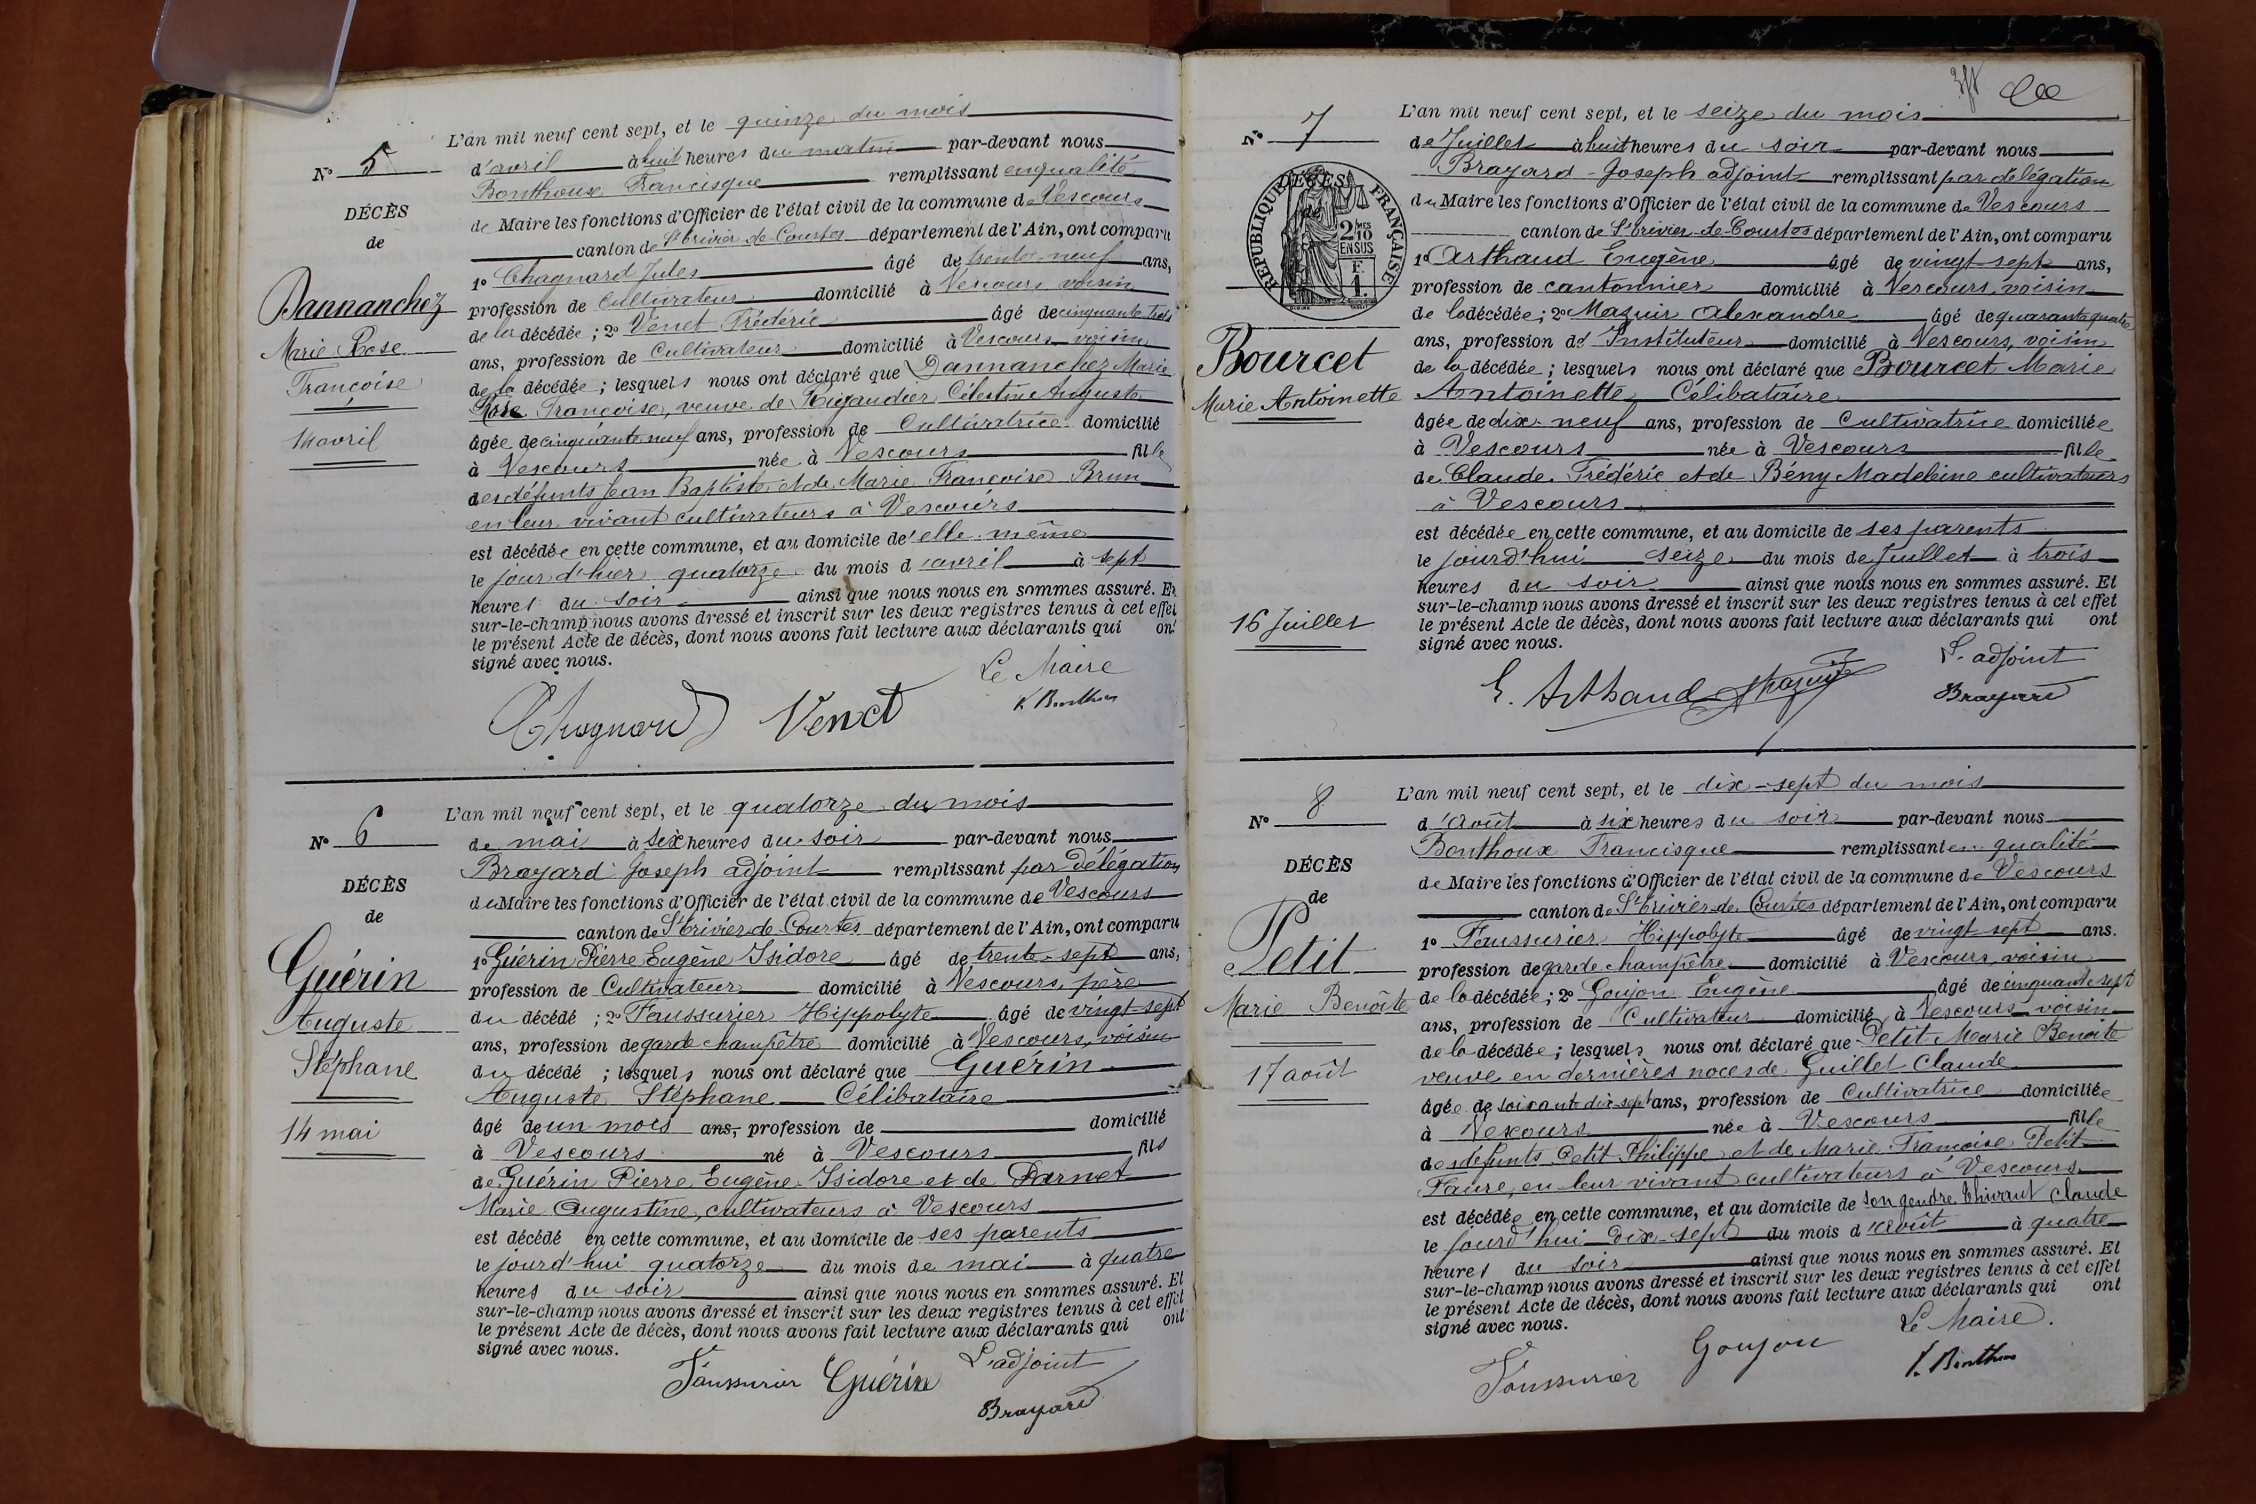 L'an mil neuf cent sept, et le quinze du mois
N° 5
d'avril à huit heures du matin par-devant nous
Bonthoux Francisque remplissant en qualité
DÉCÈS
de Maire les fonctions d'Officier de l'état civil de la commune de Vescours
de
canton de St Trivier-de-Courtes département de l'Ain, ont comparu
1° Chagnard Jules âgé de trente-neuf ans,
Dannanchez
profession de Cultivateur domicilié à Vescours voisin
de la décédée ; 2° Venet Frédéric âgé de cinquante trois
Marie Rose
ans, profession de Cultivateur domicilié à Vescours voisin
Françoise
de la décédée ; lesquels nous ont déclaré que Dannanchez Marie
Rose Françoise, veuve de Rigaudier Célestin Auguste
14 avril
âgée de cinquante neuf ans, profession de Cultivatrice domicilié
à Vescours née à Vescours fille
des défunts Jean Baptiste et de Marie Françoise Brun
en leur vivant cultivateurs à Vescours
est décédée en cette commune, et au domicile de d'elle-même
le jour d'hier quatorze du mois d'avril à sept
heures du soir ainsi que nous nous en sommes assuré. Et
sur-le-champ nous avons dressé et inscrit sur les deux registres tenus à cet effet
le présent Acte de décès, dont nous avons fait lecture aux déclarants qui ont
signé avec nous.
Le Maire
Chagnard Venet F. Bonthoux
L'an mil neuf cent sept, et le quatorze du mois
N° 6
de mai à six heures du soir par-devant nous
Brayard Joseph adjoint remplissant par délégation
DÉCÈS
du Maire les fonctions d'Officier de l'état civil de la commune de Vescours
de
canton de St Trivier-de-Courtes département de l'Ain, ont comparu
1° Guérin Pierre Eugène Isidore âgé de trente-sept ans,
Guérin
profession de Cultivateur domicilié à Vescours, père
du décédé ; 2° Faussurier Hippolyte âgé de vingt-sept
Auguste
ans, profession de garde champêtre domicilié à Vescours, voisin
Stéphane
du décédé ; lesquels nous ont déclaré que Guérin
Auguste Stéphane Célibataire
14 mai
âgé de un mois ans, profession de domicilié
à Vescours né à Vescours fils
de Guérin Pierre Eugène Isidore et de Darnet
Marie Augustine, cultivateurs à Vescours
est décédé en cette commune, et au domicile de ses parents
le jourd'hui quatorze du mois de mai à quatre
heures du soir ainsi que nous nous en sommes assuré. Et
sur-le-champ nous avons dressé et inscrit sur les deux registres tenus à cet effet
le présent Acte de décès, dont nous avons fait lecture aux déclarants qui ont
signé avec nous.
L'adjoint
Faussurier Guérin
Brayard
L'an mil neuf cent sept, et le seize du mois
N° 7
de Juillet à huit heures du soir par-devant nous
Brayard Joseph adjoint remplissant par délégation
RÉPUBLIQUE FRANÇAISE
2/10 EN SUS
F. 1.
du Maire les fonctions d'Officier de l'état civil de la commune de Vescours
canton de St Trivier-de-Courtes département de l'Ain, ont comparu
1° Arthaud Eugène âgé de vingt-sept ans,
profession de cantonnier domicilié à Vescours, voisin
de la décédée ; 2° Mazuir Alexandre âgé de quarante quatre
Bourcet
ans, profession d'Instituteur domicilié à Vescours, voisin
de la décédée ; lesquels nous ont déclaré que Bourcet Marie
Marie Antoinette
Antoinette Célibataire
âgée de dix-neuf ans, profession de Cultivatrice domiciliée
à Vescours née à Vescours fille
de Claude Frédéric et de Bény Madeleine cultivateurs
à Vescours
est décédée en cette commune, et au domicile de ses parents
le jourd'hui seize du mois de Juillet à trois
heures du soir ainsi que nous nous en sommes assuré. Et
sur-le-champ nous avons dressé et inscrit sur les deux registres tenus à cet effet
16 Juillet
le présent Acte de décès, dont nous avons fait lecture aux déclarants qui ont
signé avec nous.
L'adjoint
E. Arthaud Mazuir Brayard
L'an mil neuf cent sept, et le dix-sept du mois
N° 8
d'Août à six heures du soir par-devant nous
Bonthoux Francisque remplissant en qualité
DÉCÈS
de Maire les fonctions d'Officier de l'état civil de la commune de Vescours
de
canton de St Trivier-de-Courtes département de l'Ain, ont comparu
1° Faussurier Hippolyte âgé de vingt-sept ans.
Petit
profession de garde champêtre domicilié à Vescours voisin
Marie Benoîte
de la décédée ; 2° Goujon Eugène âgé de cinquante sept
ans, profession de Cultivateur domicilié à Vescours voisin
de la décédée ; lesquels nous ont déclaré que Petit Marie Benoîte
17 août
veuve en dernières noces de Guillet Claude
âgée de soixante dix sept ans, profession de Cultivatrice domiciliée
à Vescours née à Vescours fille
des défunts Petit Philippe et de Marie Françoise Petit
Faure, en leur vivant cultivateurs à Vescours
est décédée en cette commune, et au domicile de son gendre Thivant Claude
le jourd'hui dix-sept du mois d'Août à quatre
heures du soir ainsi que nous nous en sommes assuré. Et
sur-le-champ nous avons dressé et inscrit sur les deux registres tenus à cet effet
le présent Acte de décès, dont nous avons fait lecture aux déclarants qui ont
signé avec nous.
Le Maire.
Faussurier Goujon F. Bonthoux